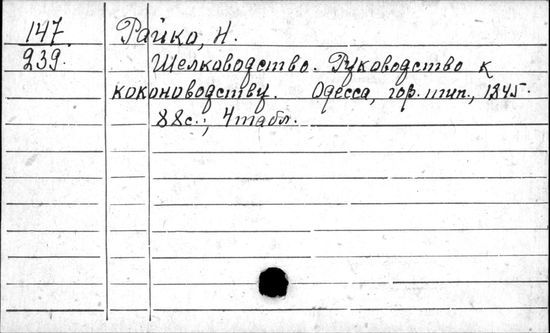 147 Райко, Н.
239. Шелководство. Руководство к
коконоводству. Одесса, гор. тип., 1845.
88с.; 4 табл.